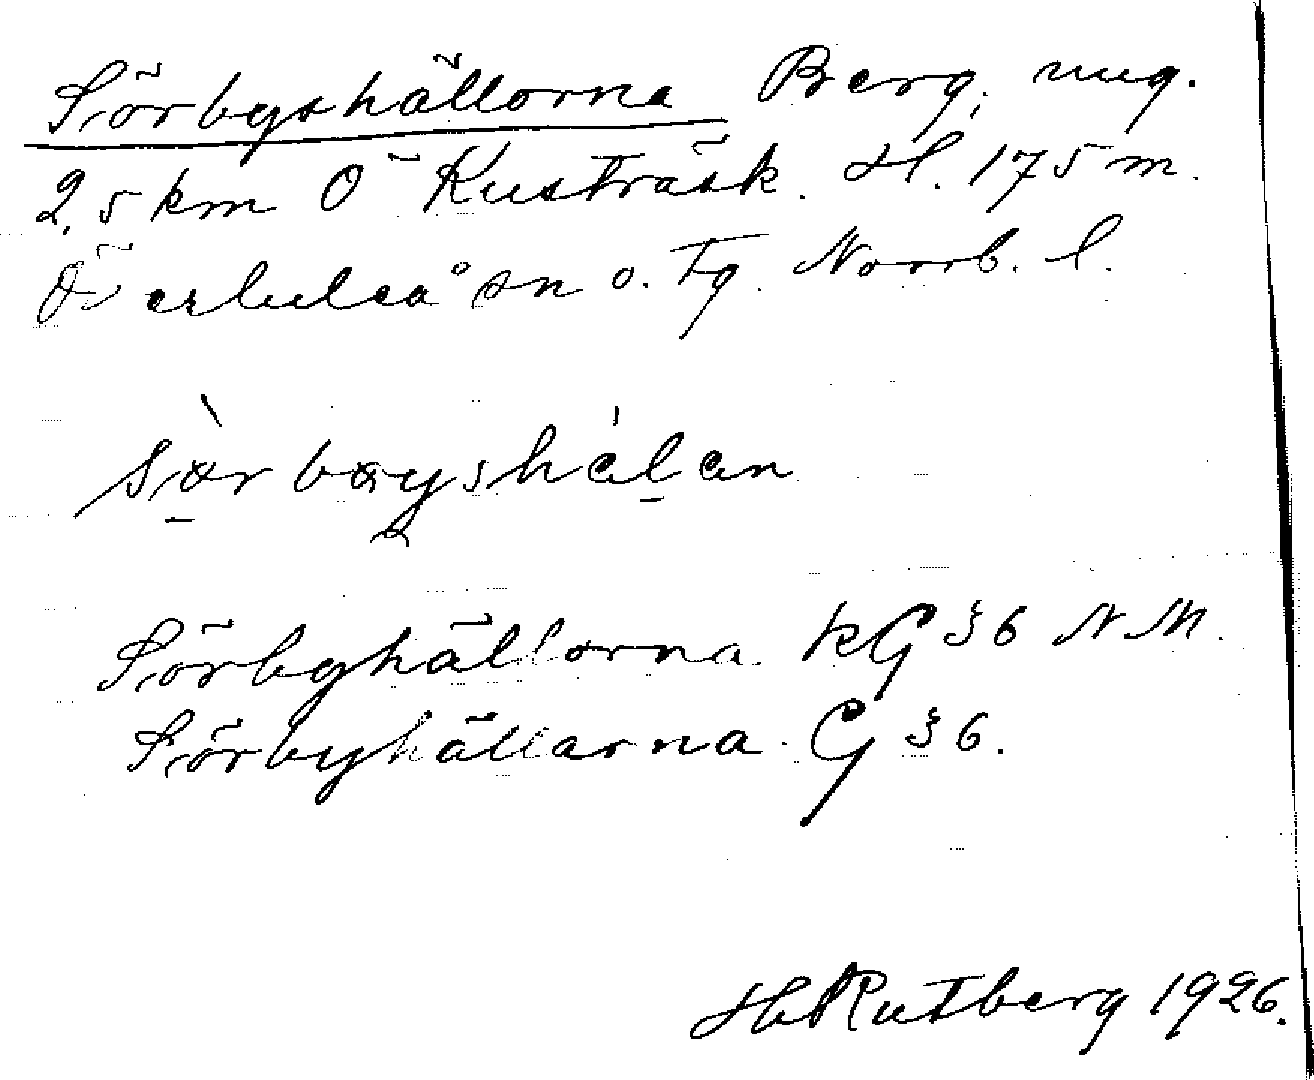 Sörbyshällorna Berg, ung.
2,5 km Ö Kusträsk. H. 175 m.
Överluleå sn o. Tg. Norrb. l.
Sörbyhällorna KG § 6 NM.
Sörbyhällarna. G § 6.
Hb Rutberg 1926.